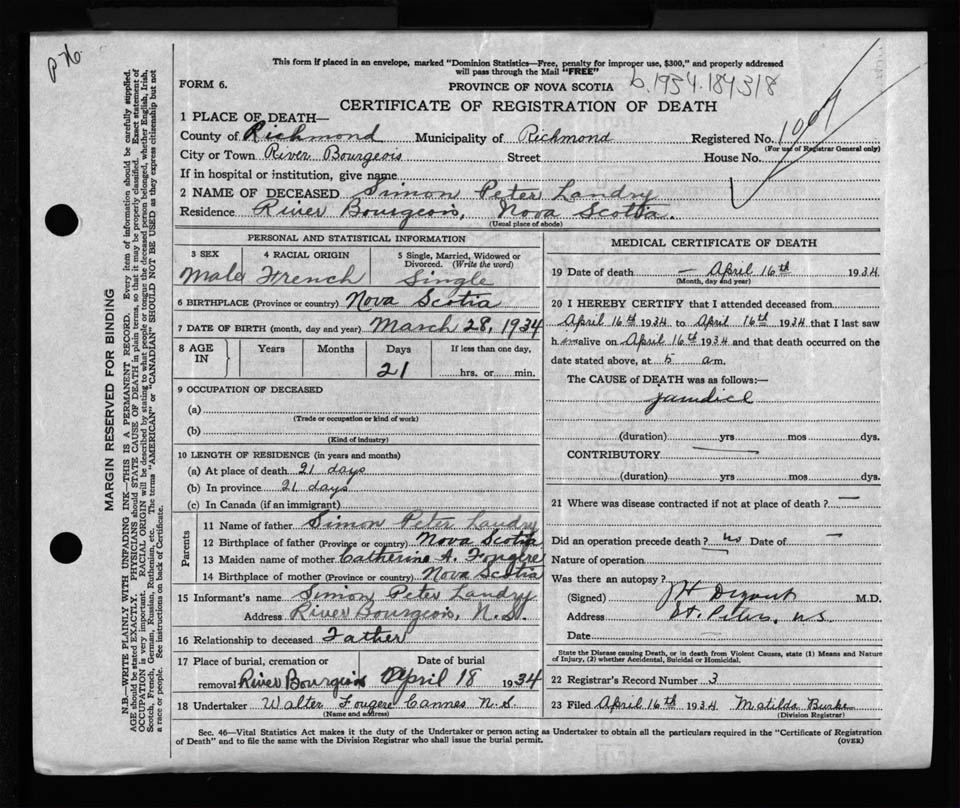 This form if placed in an envelope, marked "Dominion Statistics—Free, penalty for improper use, $300," and properly addressed
will pass through the Mail "FREE"
FORM 6.
PROVINCE OF NOVA SCOTIA
b.1934.184318
CERTIFICATE OF REGISTRATION OF DEATH
1 PLACE OF DEATH—
County of Richmond Municipality of Richmond Registered No.
(For use of Registrar General only)
City or Town River Bourgeois Street House No.
If in hospital or institution, give name
2 NAME OF DECEASED Simon Peter Landry
Residence River Bourgeois, Nova Scotia.
(Usual place of abode)
PERSONAL AND STATISTICAL INFORMATION
3 SEX 4 RACIAL ORIGIN 5 Single, Married, Widowed or Divorced. (Write the word)
Male French Single
6 BIRTHPLACE (Province or country) Nova Scotia
7 DATE OF BIRTH (month, day and year) March 28, 1934
8 AGE IN Years Months Days If less than one day,
21 hrs. or min.
9 OCCUPATION OF DECEASED
(a)
(Trade or occupation or kind of work)
(b)
(Kind of industry)
10 LENGTH OF RESIDENCE (in years and months)
(a) At place of death 21 days
(b) In province 21 days
(c) In Canada (if an immigrant)
Parents
11 Name of father Simon Peter Landry
12 Birthplace of father (Province or country) Nova Scotia
13 Maiden name of mother Catherine A. Fougere
14 Birthplace of mother (Province or country) Nova Scotia
15 Informant's name Simon Peter Landry
Address River Bourgeois, N.S.
16 Relationship to deceased Father
17 Place of burial, cremation or Date of burial
removal River Bourgeois April 18 1934
18 Undertaker Walter Fougere Cannes N.S
(Name and address)
MEDICAL CERTIFICATE OF DEATH
19 Date of death — April 16th 1934
(Month, day and year)
20 I HEREBY CERTIFY that I attended deceased from
April 16th 1934 to April 16th 1934 that I last saw
h im alive on April 16th 1934 and that death occurred on the
date stated above, at 5 am.
The CAUSE of DEATH was as follows:—
jaundice
(duration) yrs mos dys.
CONTRIBUTORY
(duration) yrs. mos. dys.
21 Where was disease contracted if not at place of death? —
Did an operation precede death? no Date of —
Nature of operation
Was there an autopsy?
(Signed) M.D.
Address St. Peters, N.S.
Date —
State the Disease causing Death, or in death from Violent Causes, state (1) Means and Nature
of Injury, (2) whether Accidental, Suicidal or Homicidal.
22 Registrar's Record Number 3
23 Filed April 16th 1934 Matilda Burke
(Division Registrar)
Sec. 46—Vital Statistics Act makes it the duty of the Undertaker or person acting as Undertaker to obtain all the particulars required in the "Certificate of Registration
of Death" and to file the same with the Division Registrar who shall issue the burial permit.
(OVER)
MARGIN RESERVED FOR BINDING
N.B.—WRITE PLAINLY WITH UNFADING INK—THIS IS A PERMANENT RECORD. Every item of information should be carefully supplied.
AGE should be stated EXACTLY. PHYSICIANS should STATE CAUSE OF DEATH in plain terms, so that it may be properly classified. Exact statement of
OCCUPATION is very important. RACIAL ORIGIN will be described by stating to what people or tongue the deceased person belonged, whether English, Irish,
Scotch, French, German, Russian, Ruthenian, etc. The terms "AMERICAN" or "CANADIAN" SHOULD NOT BE USED as they express citizenship but not
a race or people. See instructions on back of Certificate.